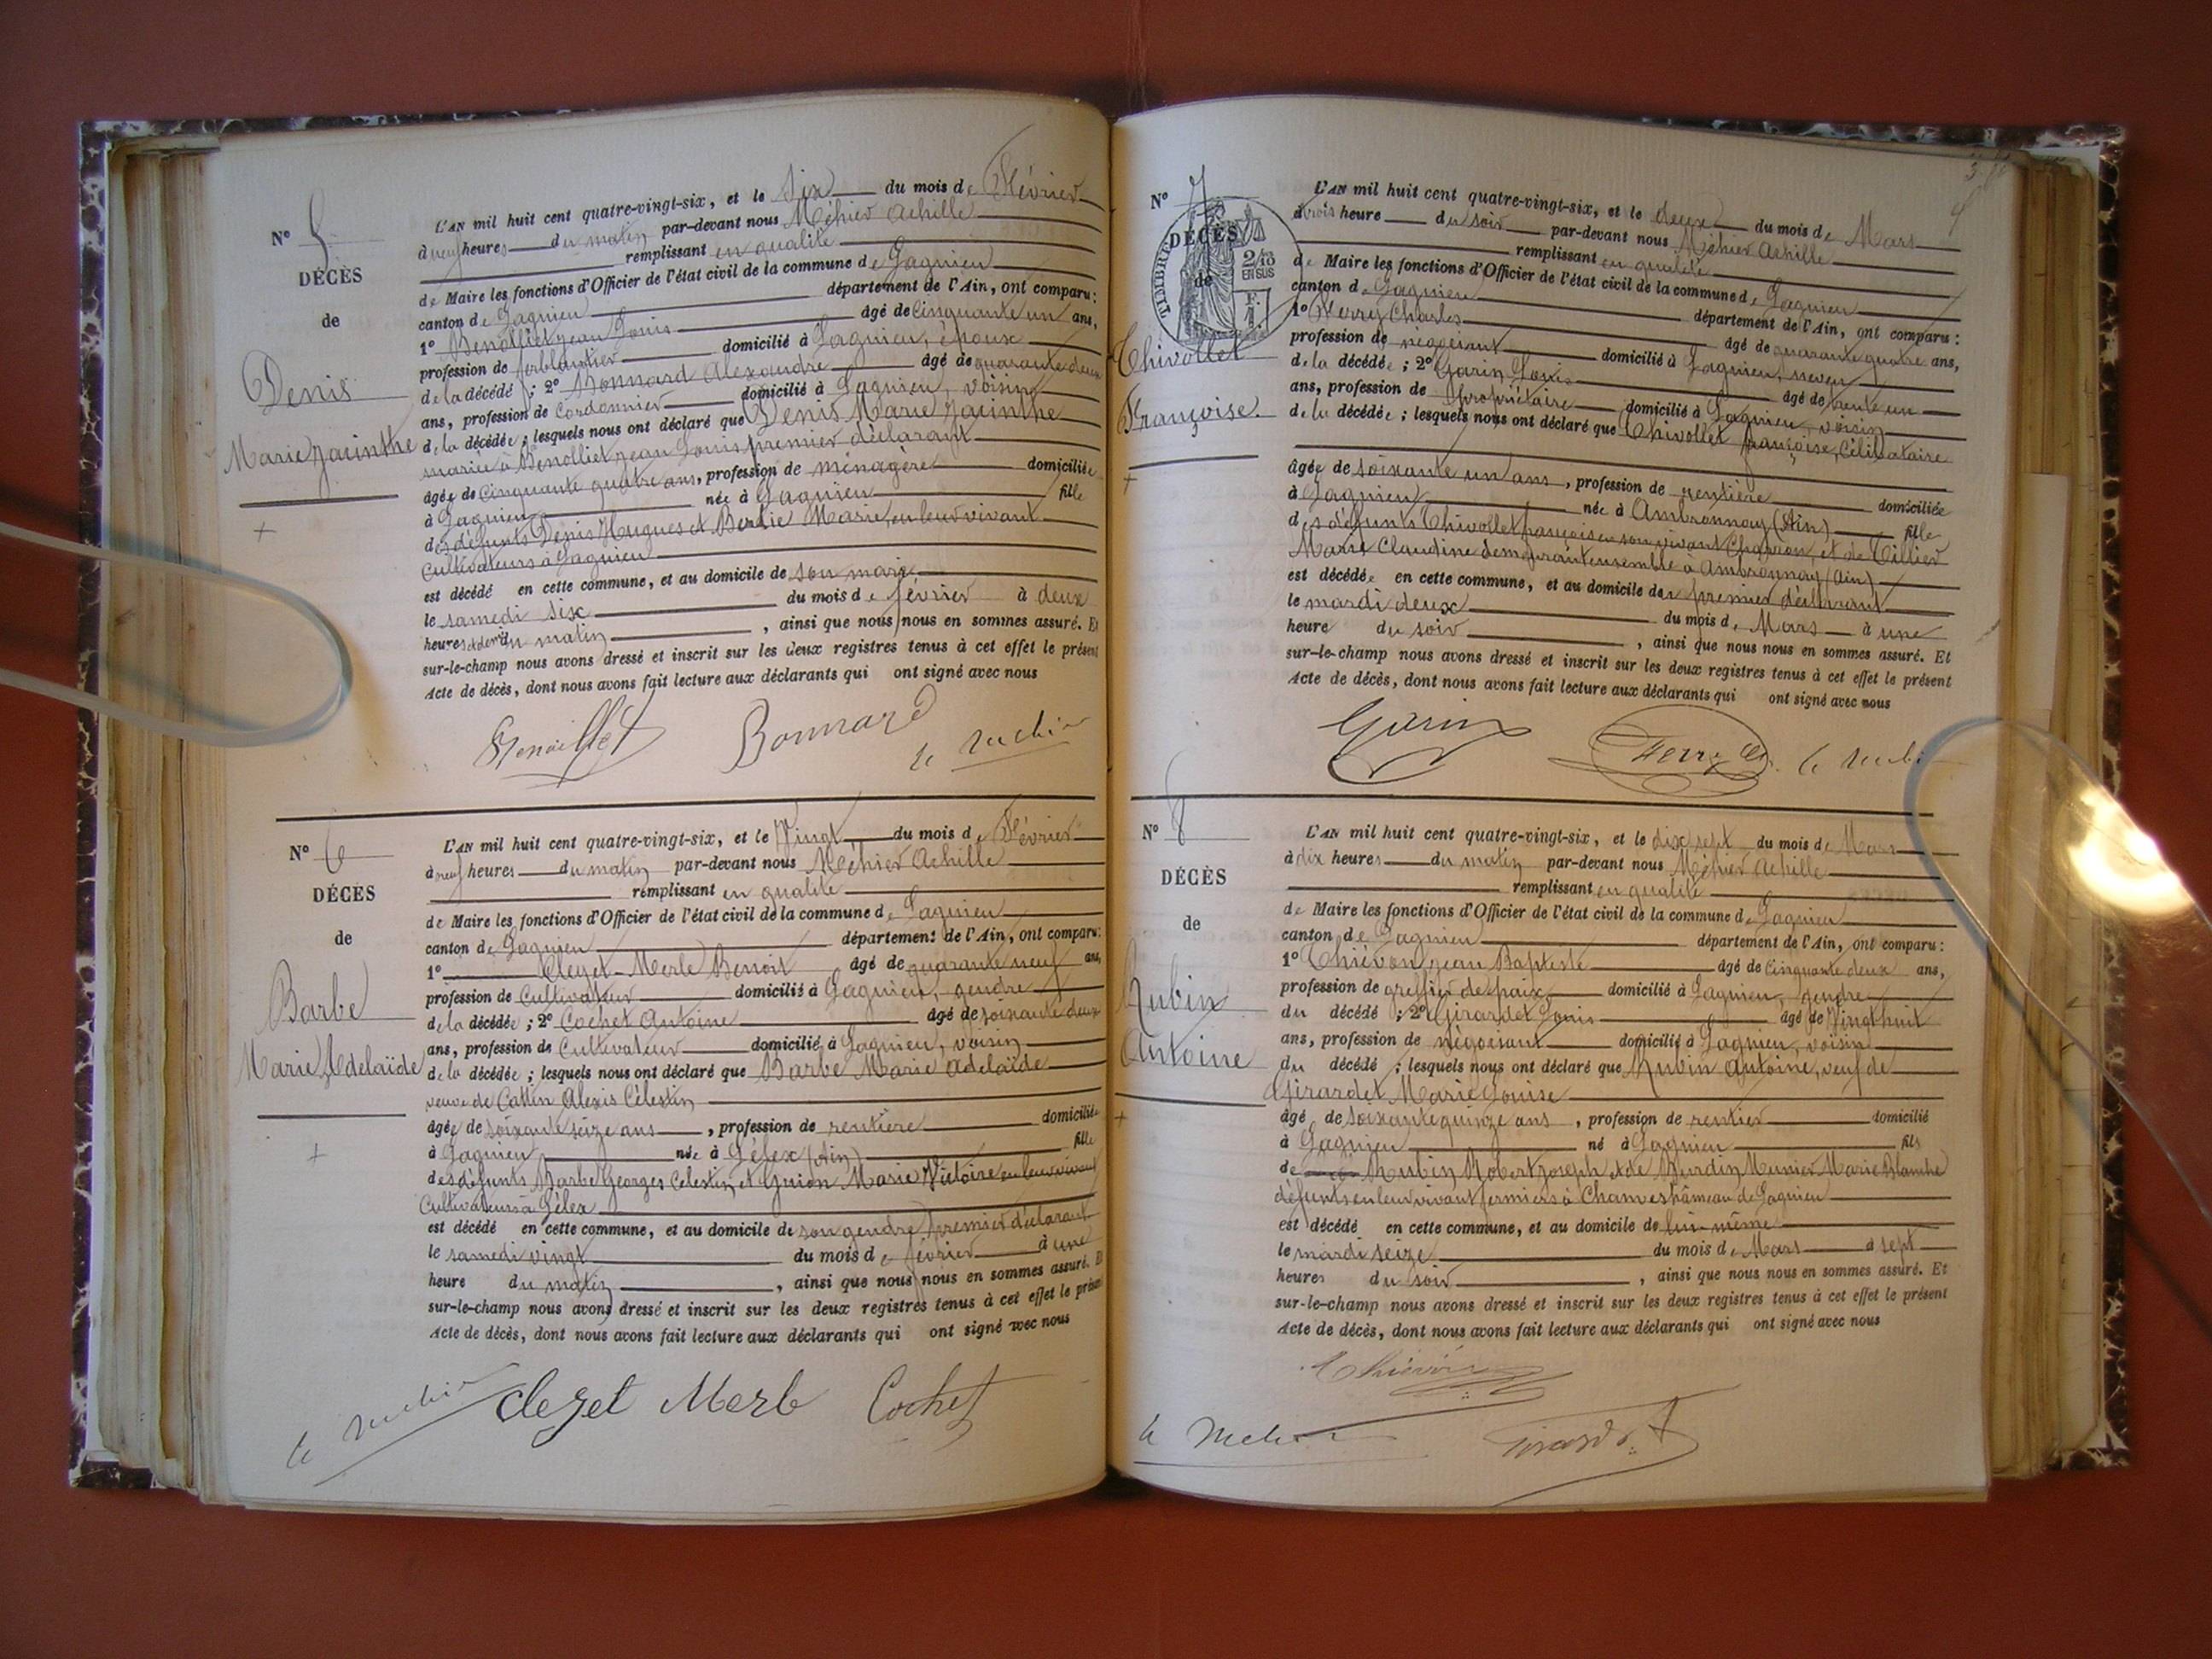 N° 5
DÉCÈS
de
Denis
Marie Jacinthe
L'AN mil huit cent quatre-vingt-six, et le Six du mois de Février
à neuf heures du matin par-devant nous Méhier Achille
remplissant en qualité
de Maire les fonctions d'Officier de l'état civil de la commune de Lagnieu
canton de Lagnieu département de l'Ain, ont comparu:
1° Benolliet Jean Louis âgé de Cinquante un ans,
profession de ferblantier domicilié à Lagnieu, époux
de la décédé ; 2° Bonnard Alexandre âgé de quarante deux
ans, profession de Cordonnier domicilié à Lagnieu, voisin
de la décédée ; lesquels nous ont déclaré que Denis Marie Jacinthe
mariée à Benolliet Jean Louis premier déclarant
âgée de Cinquante quatre ans, profession de ménagère domiciliée
à Lagnieu née à Lagnieu fille
des défunts Denis Hugues et Marie en leur vivant
Cultivateurs à Lagnieu
est décédé en cette commune, et au domicile de son mari
le samedi six du mois de février à deux
heures et demie du matin , ainsi que nous nous en sommes assuré. Et
sur-le-champ nous avons dressé et inscrit sur les deux registres tenus à cet effet le présent
Acte de décès, dont nous avons fait lecture aux déclarants qui ont signé avec nous
Bonnard
N° 6
DÉCÈS
de
Barbe
Marie Adelaïde
L'AN mil huit cent quatre-vingt-six, et le Vingt du mois de Février
à neuf heures du matin par-devant nous Méhier Achille
remplissant en qualité
de Maire les fonctions d'Officier de l'état civil de la commune de Lagnieu
canton de Lagnieu département de l'Ain, ont comparu:
1° Cleyet-Merle Benoit âgé de quarante neuf ans,
profession de Cultivateur domicilié à Lagnieu, gendre
de la décédée ; 2° Cochet Antoine âgé de soixante deux
ans, profession de Cultivateur domicilié à Lagnieu, voisin
de la décédée ; lesquels nous ont déclaré que Barbe Marie Adelaïde
veuve de Cattin Alexis Célestin
âgée de soixante seize ans , profession de rentière domiciliée
à Lagnieu née à Lélex (Ain) fille
des défunts Barbe Georges Celestin et Marie Victoire en leur vivant
Cultivateurs à Lélex
est décédé en cette commune, et au domicile de son gendre premier déclarant
le samedi vingt du mois de février à une
heure du matin , ainsi que nous nous en sommes assuré. Et
sur-le-champ nous avons dressé et inscrit sur les deux registres tenus à cet effet le présent
Acte de décès, dont nous avons fait lecture aux déclarants qui ont signé avec nous
Cleyet Merle Cochet
N° 7
DÉCÈS
de
Thivollet
Françoise
L'AN mil huit cent quatre-vingt-six, et le deux du mois de Mars
à trois heure du soir par-devant nous Méhier Achille
remplissant en qualité
de Maire les fonctions d'Officier de l'état civil de la commune de Lagnieu
canton de Lagnieu département de l'Ain, ont comparu :
1° Ferry Charles âgé de quarante quatre ans,
profession de négociant domicilié à Lagnieu, neveu
de la décédée ; 2° Garin Louis âgé de trente un
ans, profession de propriétaire domicilié à Lagnieu, voisin
de la décédée ; lesquels nous ont déclaré que Thivollet françoise, Célibataire
âgée de soixante un ans , profession de rentière domiciliée
à Lagnieu née à Ambronnay (Ain) fille
des défunts Thivollet françois en son vivant Charron, et de Tillier
Marie Claudine demeurant ensemble à Ambronnay (Ain)
est décédée en cette commune, et au domicile du premier déclarant
le mardi deux du mois de Mars à une
heure du soir , ainsi que nous nous en sommes assuré. Et
sur-le-champ nous avons dressé et inscrit sur les deux registres tenus à cet effet le présent
Acte de décès, dont nous avons fait lecture aux déclarants qui ont signé avec nous
Garin Ferry
N° 8
DÉCÈS
de
Rubin
Antoine
L'AN mil huit cent quatre-vingt-six, et le dix sept du mois de Mars
à dix heures du matin par-devant nous Méhier Achille
remplissant en qualité
de Maire les fonctions d'Officier de l'état civil de la commune de Lagnieu
canton de Lagnieu département de l'Ain, ont comparu :
1° Thiévon Jean Baptiste âgé de Cinquante deux ans,
profession de greffier de paix domicilié à Lagnieu, gendre
du décédé ; 2° Girardet Louis âgé de Vingt huit
ans, profession de négociant domicilié à Lagnieu, voisin
du décédé ; lesquels nous ont déclaré que Rubin Antoine, veuf de
Girardet Marie Louise
âgé de soixante quinze ans , profession de rentier domicilié
à Lagnieu né à Lagnieu fils
de Rubin Robert Joseph et de Murdin Munier Marie Blanche
défunts en leur vivant fermiers à Chanves hâmeau de Lagnieu
est décédé en cette commune, et au domicile de lui-même
le mardi seize du mois de Mars à sept
heures du soir , ainsi que nous nous en sommes assuré. Et
sur-le-champ nous avons dressé et inscrit sur les deux registres tenus à cet effet le présent
Acte de décès, dont nous avons fait lecture aux déclarants qui ont signé avec nous